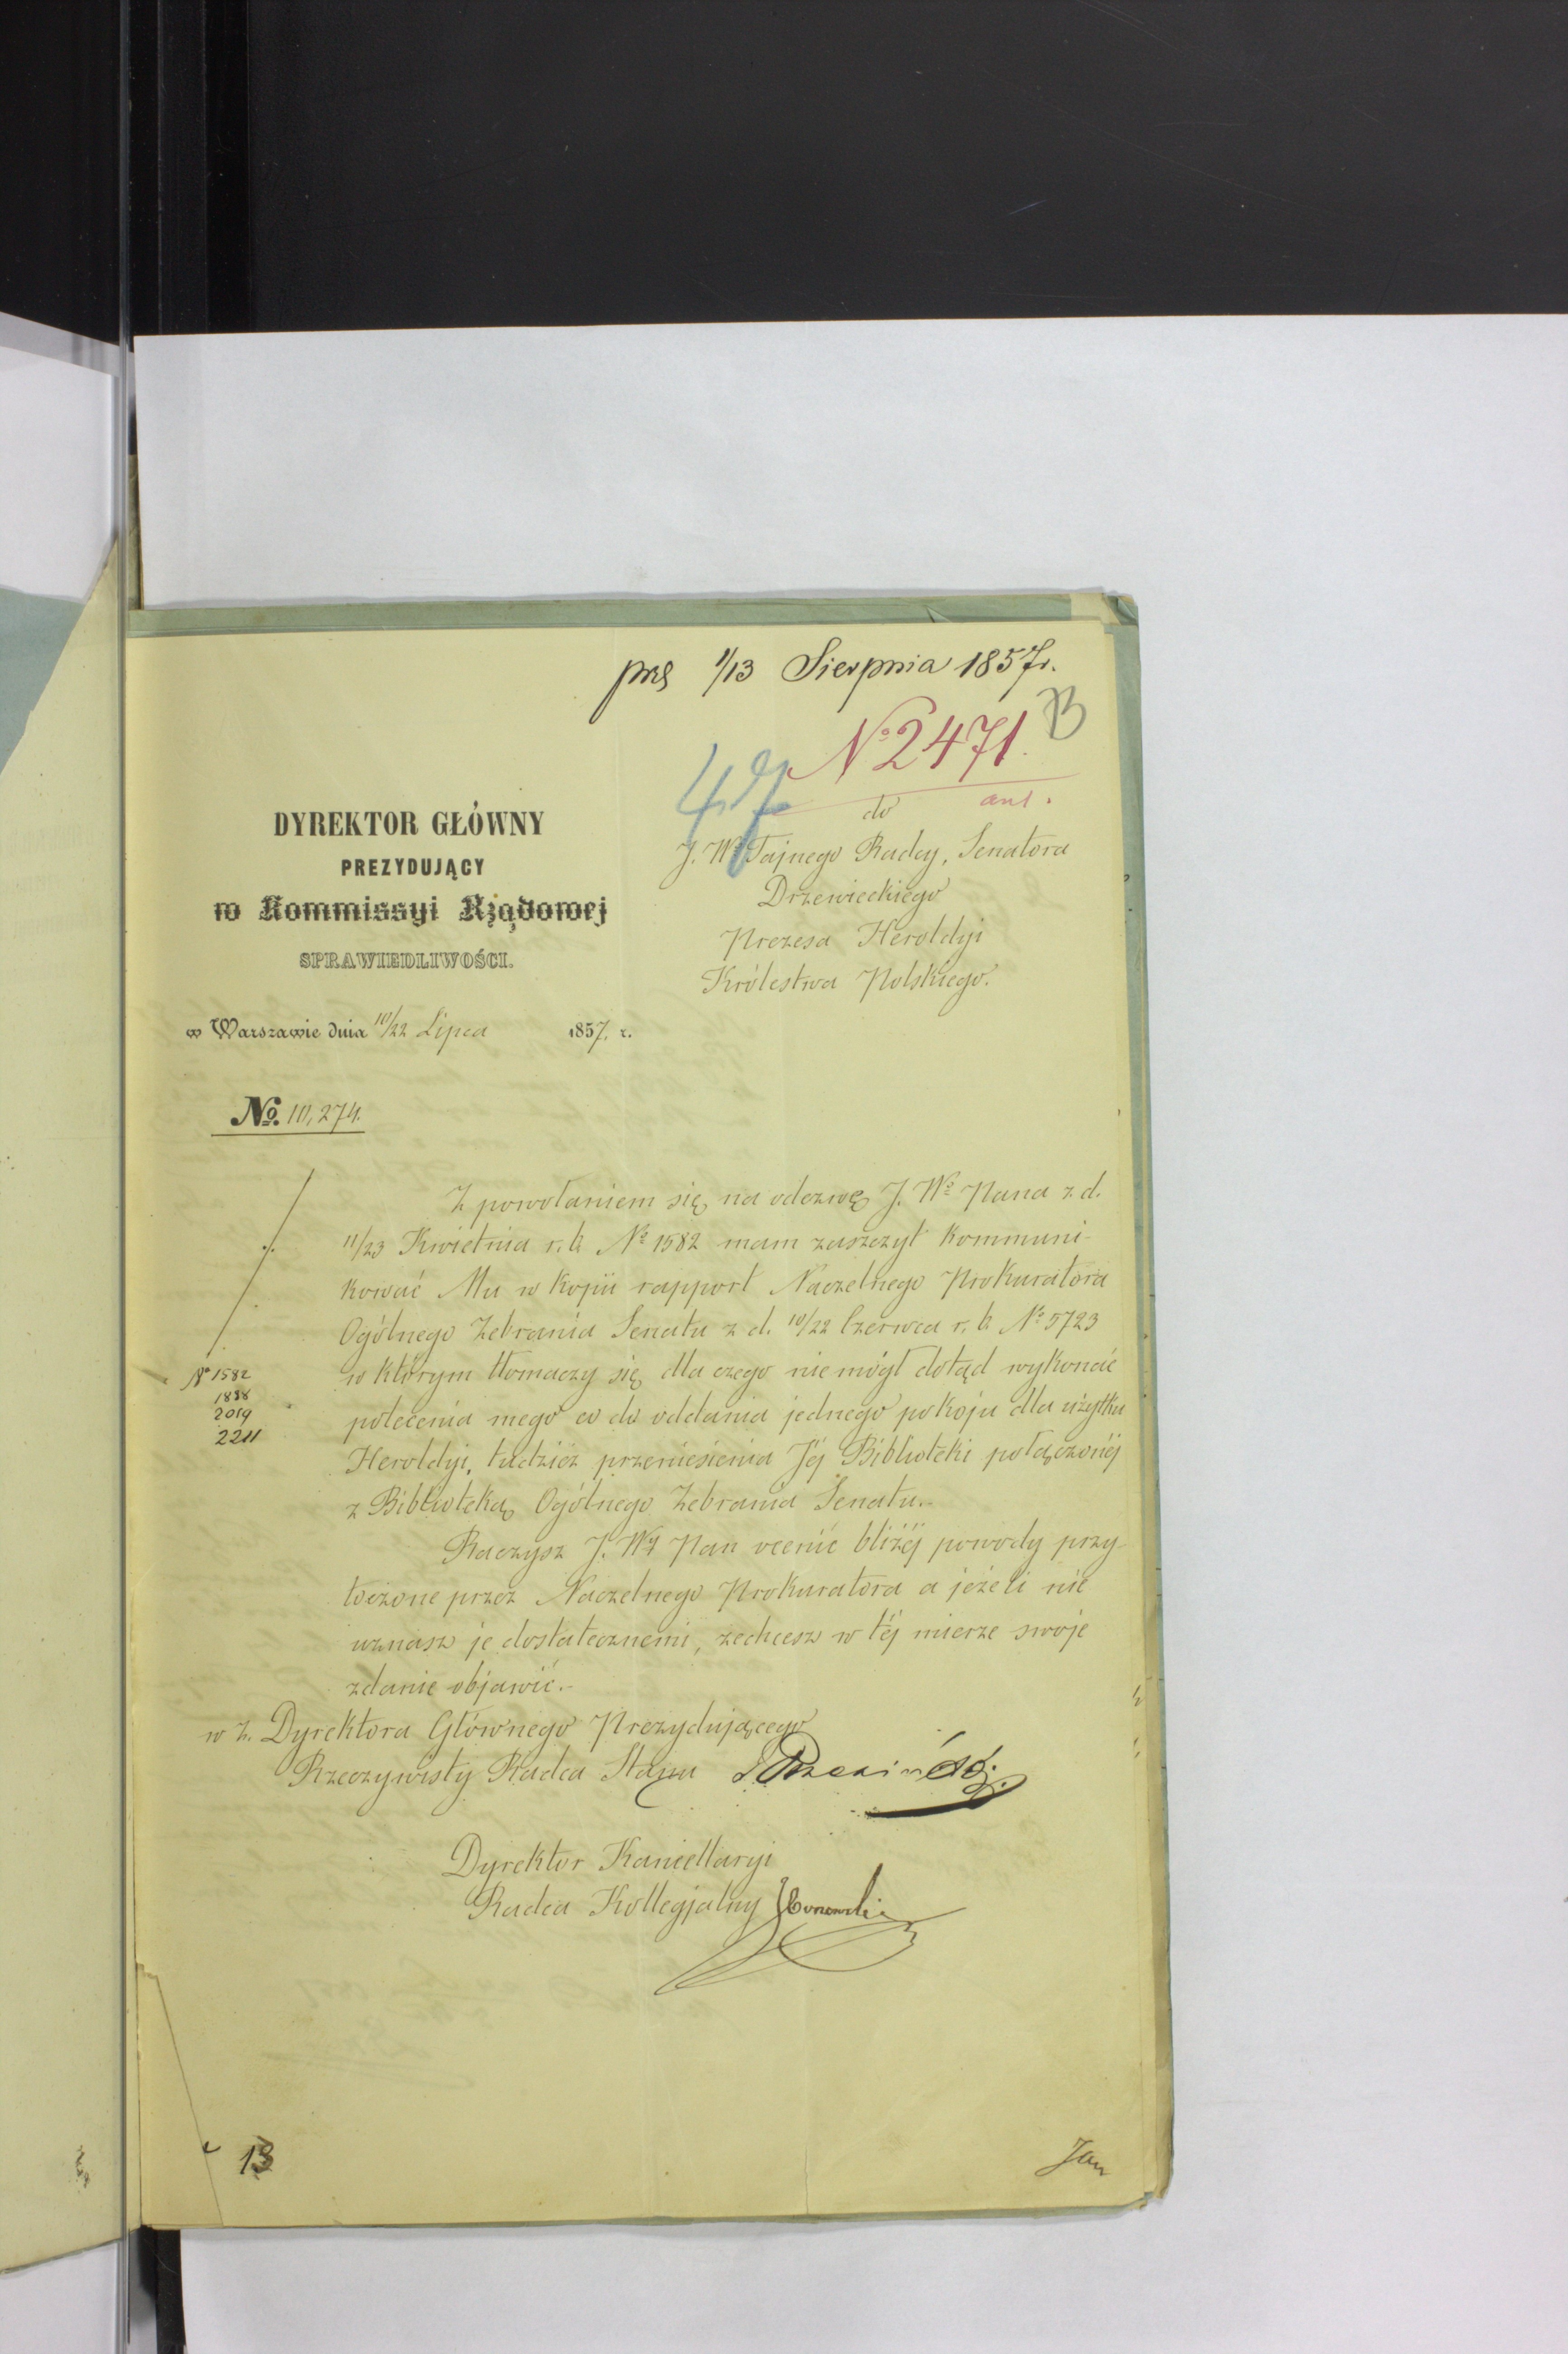 prs 1/13 Sierpnia 1857 r.
No 2471. B
47
ant.
DYREKTOR GŁÓWNY
PREZYDUJĄCY
w Kommissyi Rządowej
SPRAWIEDLIWOŚCI.
w Warszawie dnia 10/22 Lipca 1857. r.
No. 10,274.
do
J. Wo Tajnego Radcy, Senatora
Drzewieckiego
Prezesa Heroldyi
Królestwa Polskiego.
Z powołaniem się na odezwę J. Wo Pana z d.
11/23 Kwietnia r. b. No 1582 mam zaszczyt kommuni-
kować Mu w kopii rapport Naczelnego Prokuratora
Ogólnego Zebrania Senatu z d. 10/22 Czerwca r. b. No 5723
w którym tłomaczy się dla czego nie mógł dotąd wykonać
polecenia mego co do oddania jednego pokoju dla użytku
Heroldyi, tudzież przeniesienia Jéj Biblioteki połączonéj
z Biblioteką Ogólnego Zebrania Senatu.-
No 1582
1838
2019
2211
Raczysz J. Wy Pan ocenić bliżéj powody przy-
toczone przez Naczelnego Prokuratora a jeżeli nie
uznasz je dostatecznemi, zechcesz w téj mierze swoje
zdanie objawić.-
w z. Dyrektora Głównego Prezydującego
Rzeczywisty Radca Stanu
Dyrektor Kancellaryi
Radca Kollegjalny
13
Jan